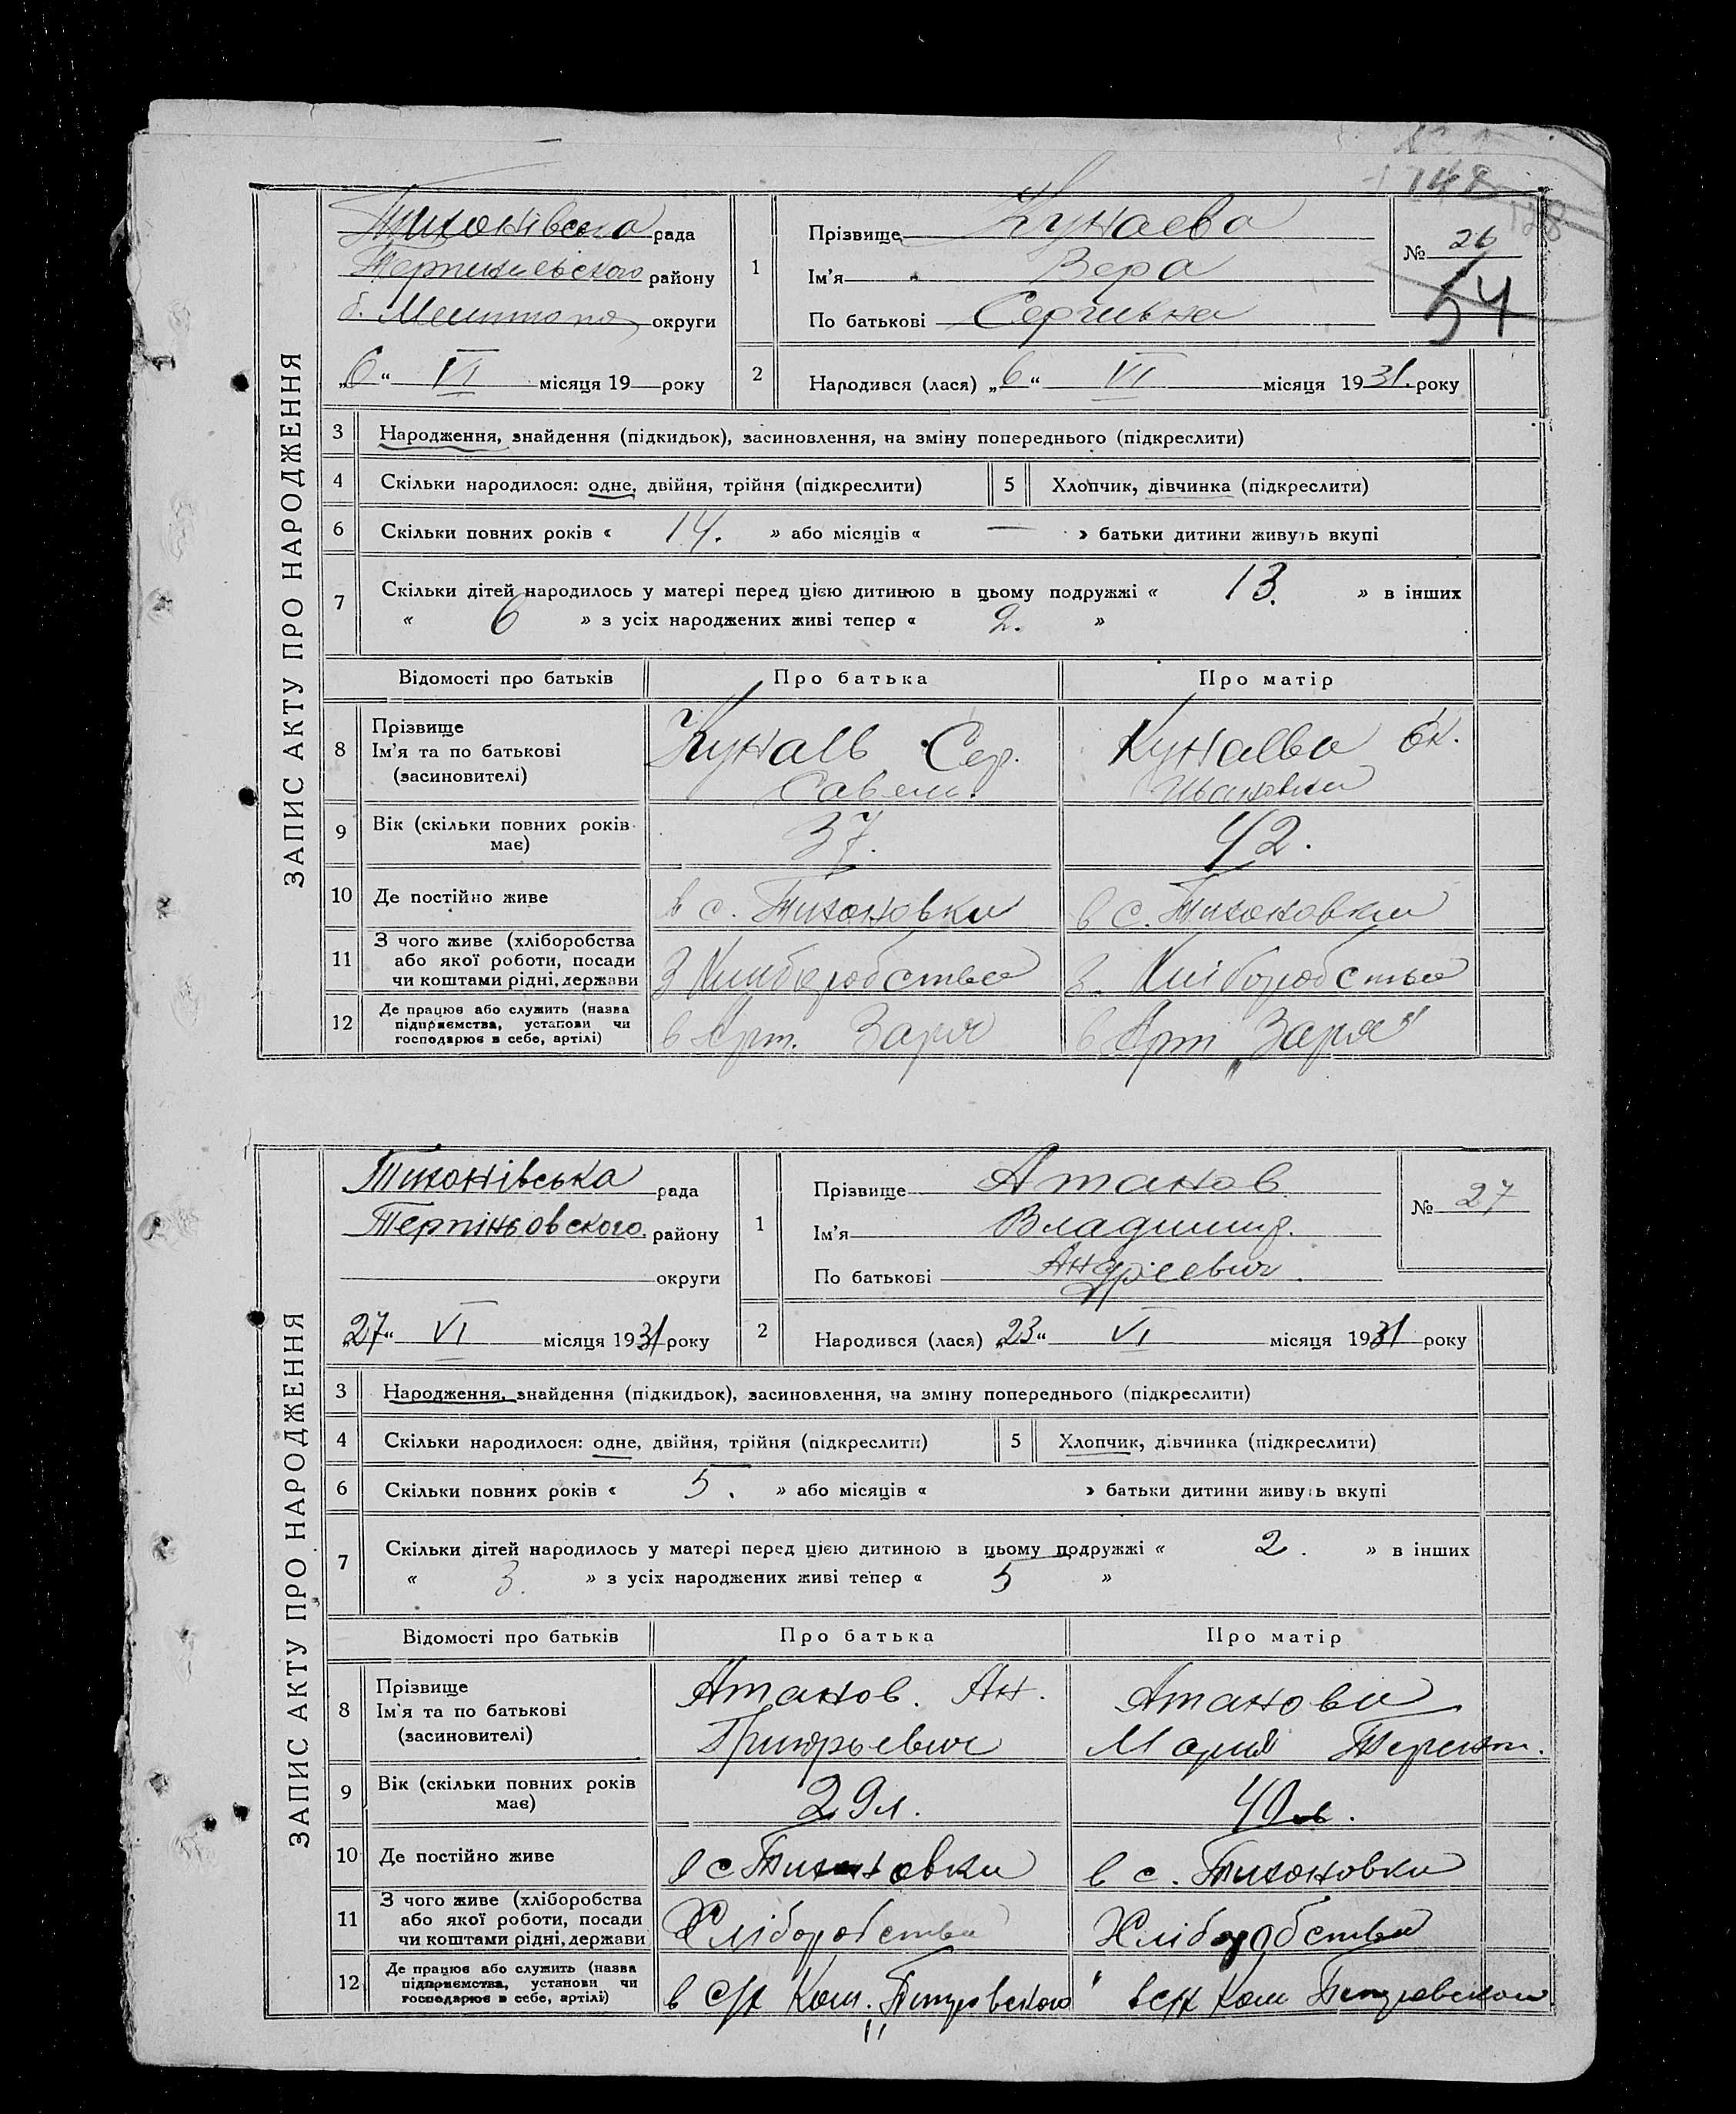 148
128
ЗАПИС АКТУ ПРО НАРОДЖЕННЯ
Тихонівська рада
района району
б. Мелитопо округи
„6“ VI місяця 19 року
1 Прізвище Кунаева
Ім'я Вера
По батькові Сергиевна
№ 26
54
2 Народився (лася) „6“ VI місяця 1931. року
3 Народження, знайдення (підкидьок), засиновлення, на зміну попереднього (підкреслити)
4 Скільки народилося: одне, двійня, трійня (підкреслити) 5 Хлопчик, дівчинка (підкреслити)
6 Скільки повних років « 14. » або місяців « — » батьки дитини живуть вкупі
7 Скільки дітей народилось у матері перед цією дитиною в цьому подружжі « 13. » в інших
« 6 » з усіх народжених живі тепер « 2. »
Відомості про батьків Про батька Про матір
8 Прізвище Ім'я та по батькові (засиновителі) Кунаев Сер. Савел. Кунаева Ек. Ивановна
9 Вік (скільки повних років має) 37. 42.
10 Де постійно живе в с. Тихоновки в с. Тихоновки
11 З чого живе (хліборобства або якої роботи, посади чи коштами рідні, держави З Хлиборобства З. Хліборобства
12 Де працює або служить (назва підприємства, установи чи господарює в себе, артілі) в Арт. Заря в Арт „Заря"
ЗАПИС АКТУ ПРО НАРОДЖЕННЯ
Тихонівська рада
Терпіньовского району
округи
„27“ VI місяця 1931 року
1 Прізвище Атанов
Ім'я Владимир.
По батькові Андріевич.
№ 27
2 Народився (лася) „23“ VI місяця 1931 року
3 Народження, знайдення (підкидьок), засиновлення, на зміну попереднього (підкреслити)
4 Скільки народилося: одне, двійня, трійня (підкреслити) 5 Хлопчик, дівчинка (підкреслити)
6 Скільки повних років « 5. » або місяців « » батьки дитини живуть вкупі
7 Скільки дітей народилось у матері перед цією дитиною в цьому подружжі « 2. » в інших
« 3. » з усіх народжених живі тепер « 5 »
Відомості про батьків Про батька Про матір
8 Прізвище Ім'я та по батькові (засиновителі) Атанов. Ан. Григорьевич Атанова Мария Терент.
9 Вік (скільки повних років має) 29л. 40л.
10 Де постійно живе в с Тихоновки в с. Тихоновки
11 З чого живе (хліборобства або якої роботи, посади чи коштами рідні, держави Хліборобства Хліборобства
12 Де працює або служить (назва підприємства, установи чи господарює в себе, артілі) в с/г Ком. Петровского в с/г Ком Петровского